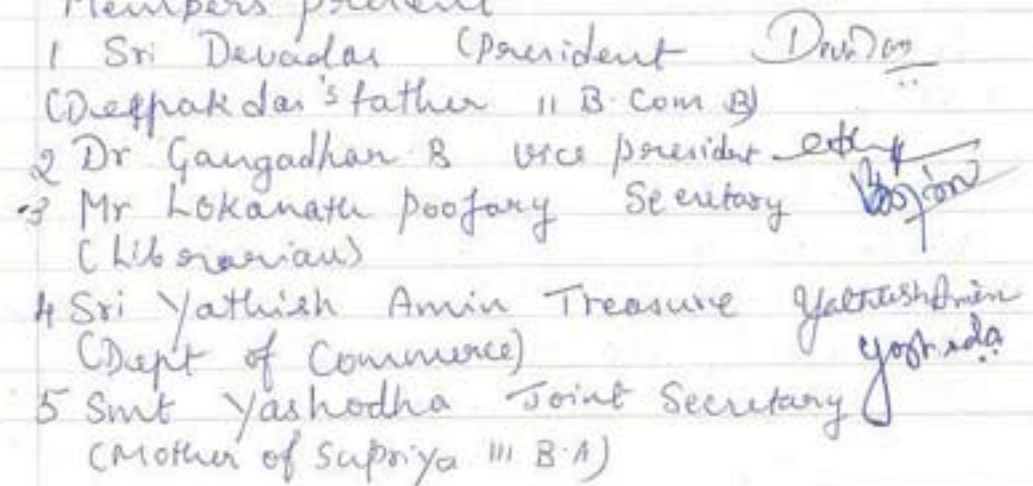 Members present
1 Sri Devadas (president Devdas
(Deepak das's father II B.Com B)
2 Dr Gangadhar B vice president
3 Mr Lokanath poojary Secretary
(Librarian)
4 Sri Yathish Amin Treasure Yathish Amin
(Dept of Commerce)
5 Smt Yashodha Joint Secretary Yashoda
(Mother of Supriya III B.A)